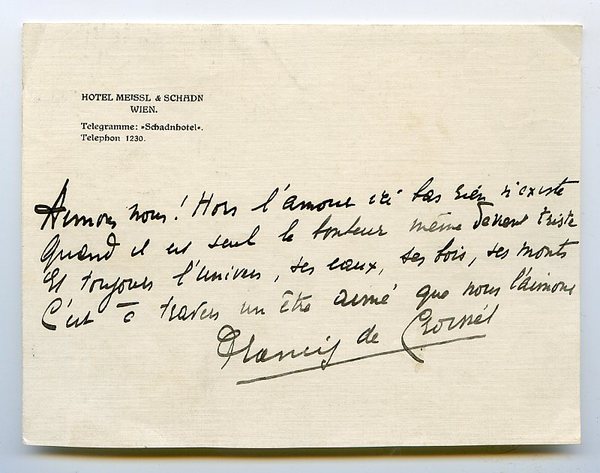 HOTEL MEISSL & SCHADN
WIEN.
Telegramme: »Schadnhotel«.
Telephon 1230.
Aimons nous! Hors l'amour ici bas rien n'existe
Quand il est seul le bonheur même devient triste
Et toujours l'univers, ses eaux, ses bois, ses monts
C'est à travers un être aimé que nous l'aimons
Francis de Croisset